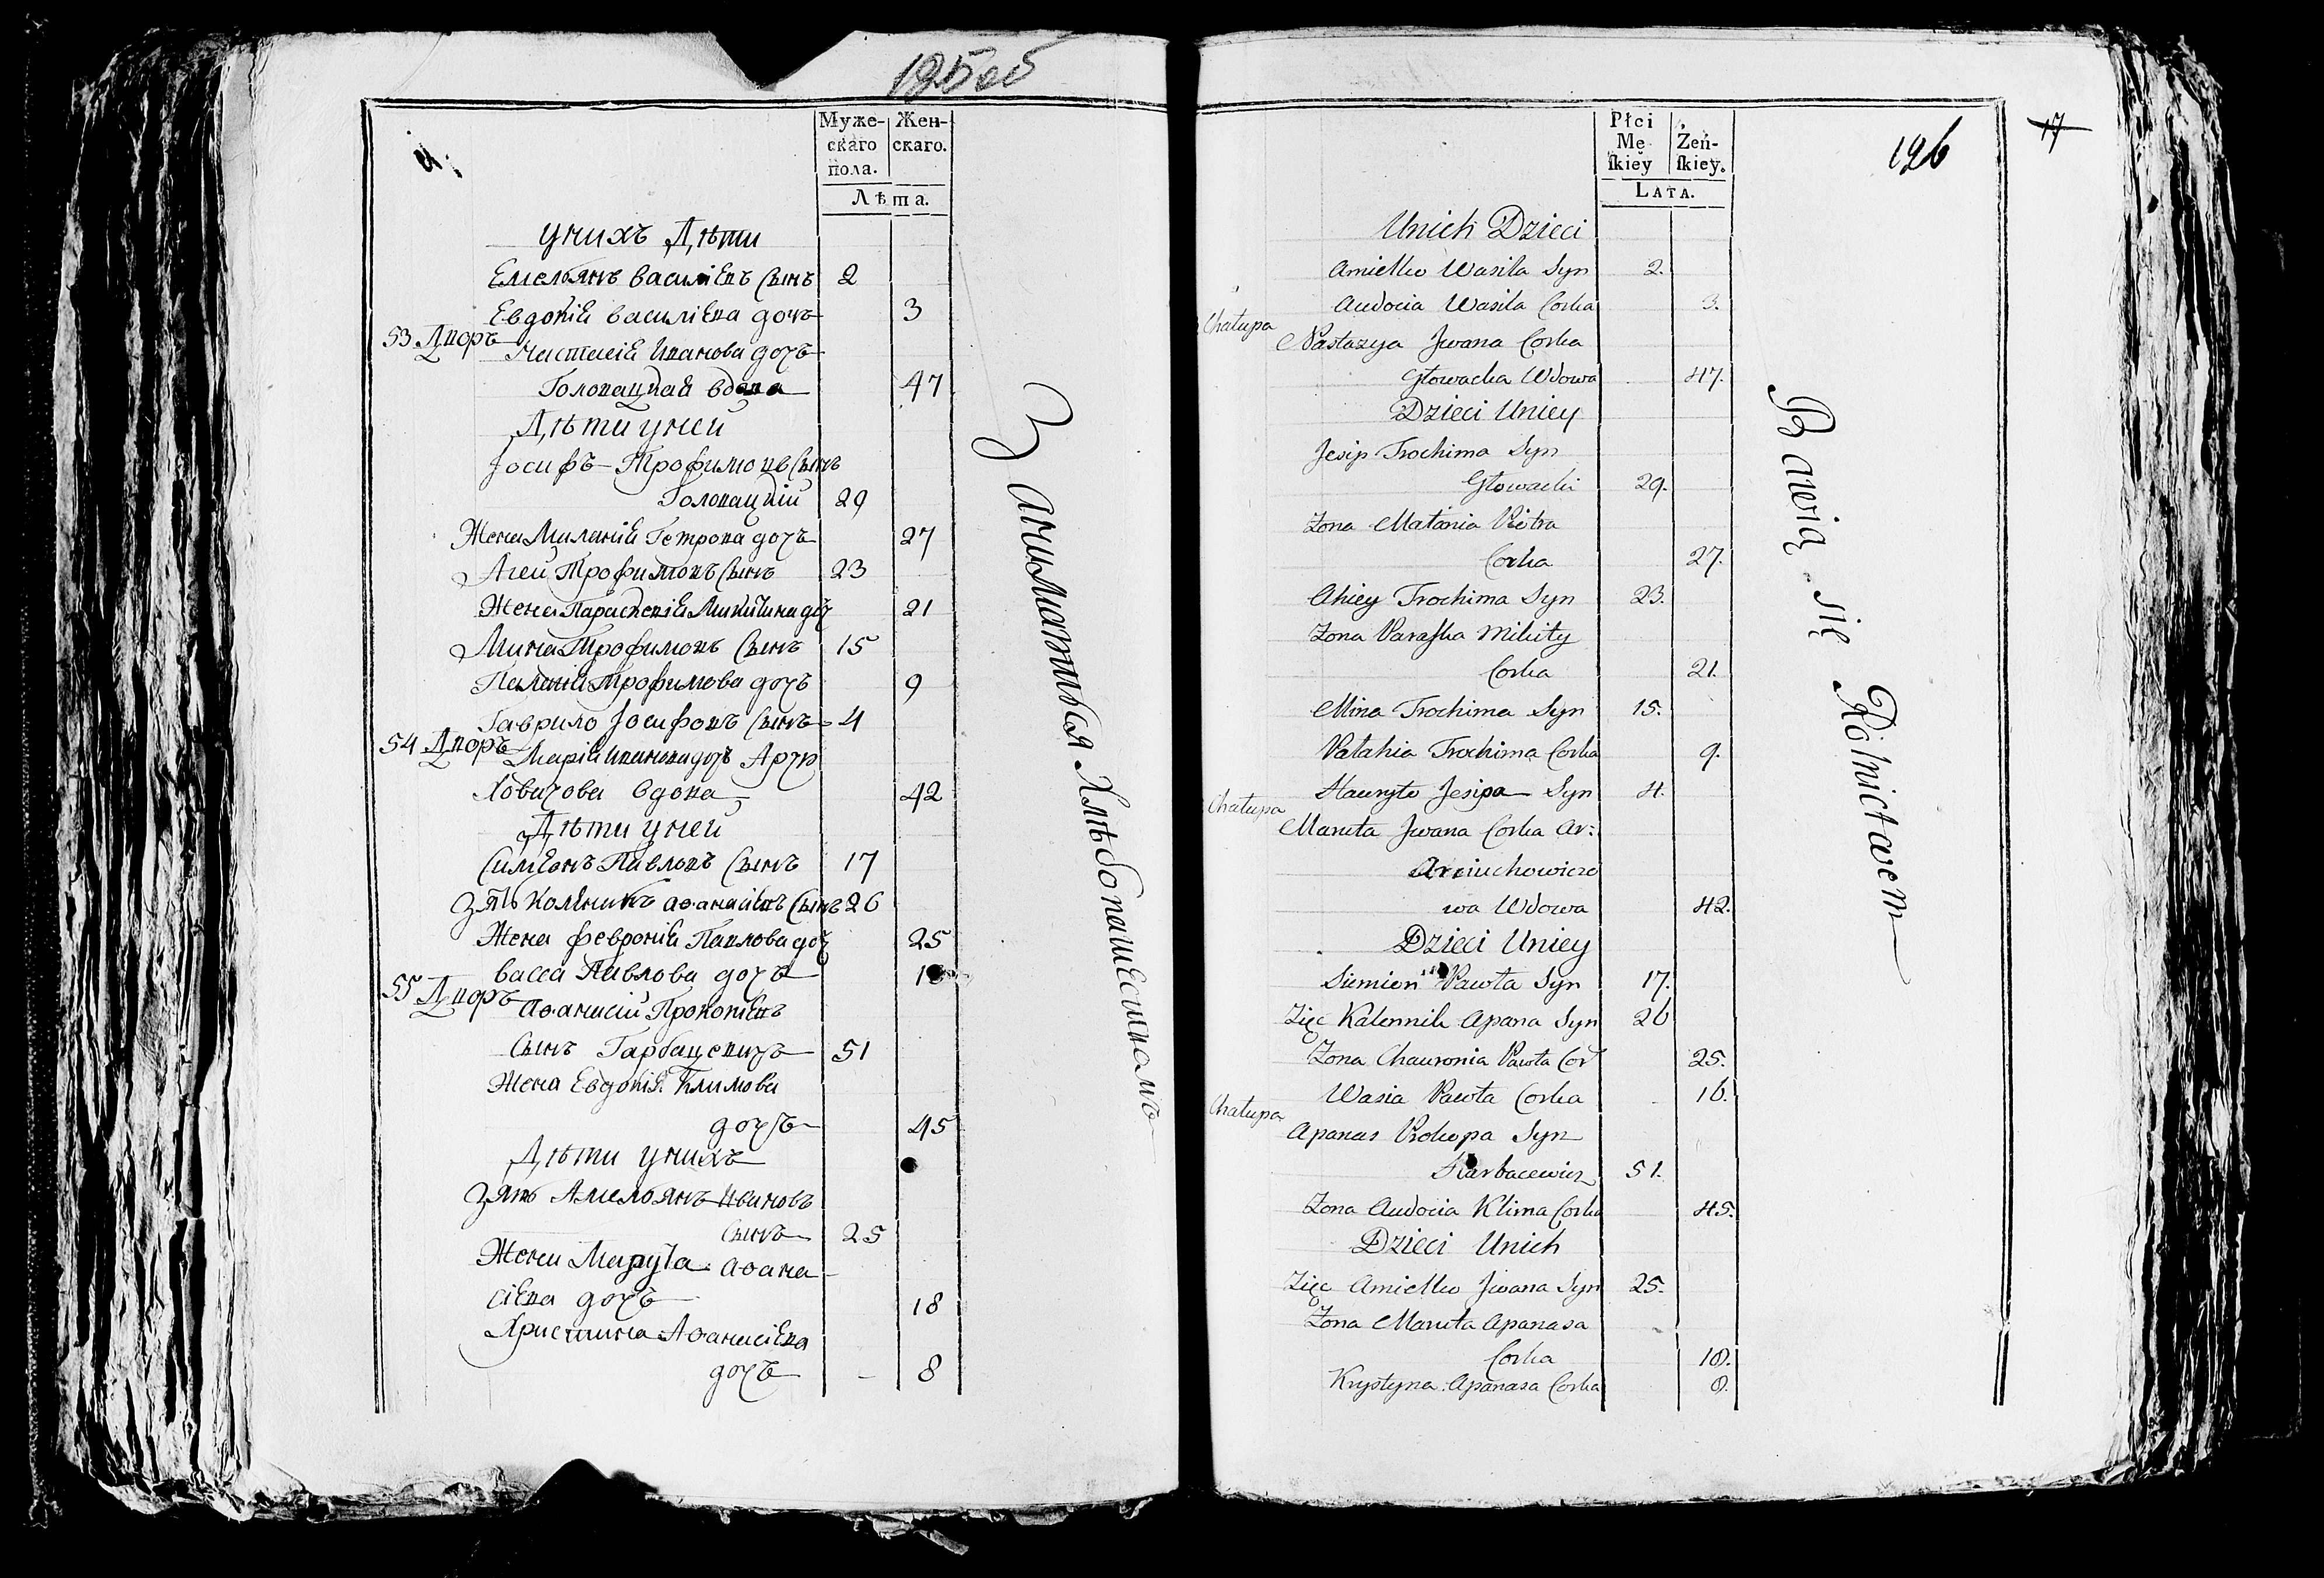 125об
Муже-
скаго
пола.
Жен-
скаго.
Лѣта.
У нихъ Дѣти
Емельянъ Василіевъ Сынъ 2
Евдокія Василіева дочь 3
53 Дворъ
Настасія Иванова дочь
Головацкая вдова 47
Дѣти у ней
Іосифъ Трофимовъ Сынъ
Головацкій 29
Жена Миланія Петрова дочь 27
Агей Трофимовъ Сынъ 23
Жена Параскевія Микитина доч 21
Мина Трофимовъ Сынъ 15
Палагія Трофимова дочь 9
Гаврило Іосифовъ Сынъ 4
54 Дворъ
Марія Иванова дочь Артю
ховичова вдова 42
Дѣти у ней
Симеонъ Павловъ Сынъ 17
Зять Колѣникъ Аѳанасіевъ Сынъ 26
Жена Февронія Павлова доч 25
Васса Павлова дочь
55 Дворъ
Аѳанасій Прокопіевъ
Сынъ Гарбацевичъ 51
Жена Евдокія Климова
дочь 45
Дѣти у нихъ
Зять Амельянъ Ивановъ
Сынъ 25
Жена Марута Аѳана-
сіева дочь 18
Христина Аѳанасіева
дочь - 8
Занимаются Хлѣбопашествомъ
Płci
Mę
ſkiey
Żeń-
ſkiey.
LATA.
126
17
Unich Dzieci
Amielko Wasila Syn 2.
Audocia Wasila Corka 3.
Chałupa
Nastazya Jwana Corka
Głowacka Wdowa 47.
Dzieci Uniey
Jesip Trochima Syn
Głowacki 29.
Zona Matania Piotra
Corka 27.
Ahiey Trochima Syn 23.
Zona Paraſka Mikity
Corka 21.
Mina Trochima Syn 15.
Patahia Trochima Corka 9.
Hauryło Jesipa Syn 4.
Chałupa
Maruta Jwana Corka Ar:
Arciuchowiczo
wa Wdowa 42.
Dzieci Uniey
Siemion Pawła Syn 17.
Zięc Kalennik Apana Syn 26
Zona Chauronia Pawła Cor 25.
Wasia Pawła Corka 16.
Chałupa
Apanas Prokopa Syn
Harbacewicz 51.
Zona Audocia Klima Corka 45.
Dzieci Unich
Zięc Amielko Jwana Syn 25.
Zona Maruta Apanasa
Corka 18.
Krystyna Apanasa Corka 8.
Bawią się Rolnictwem